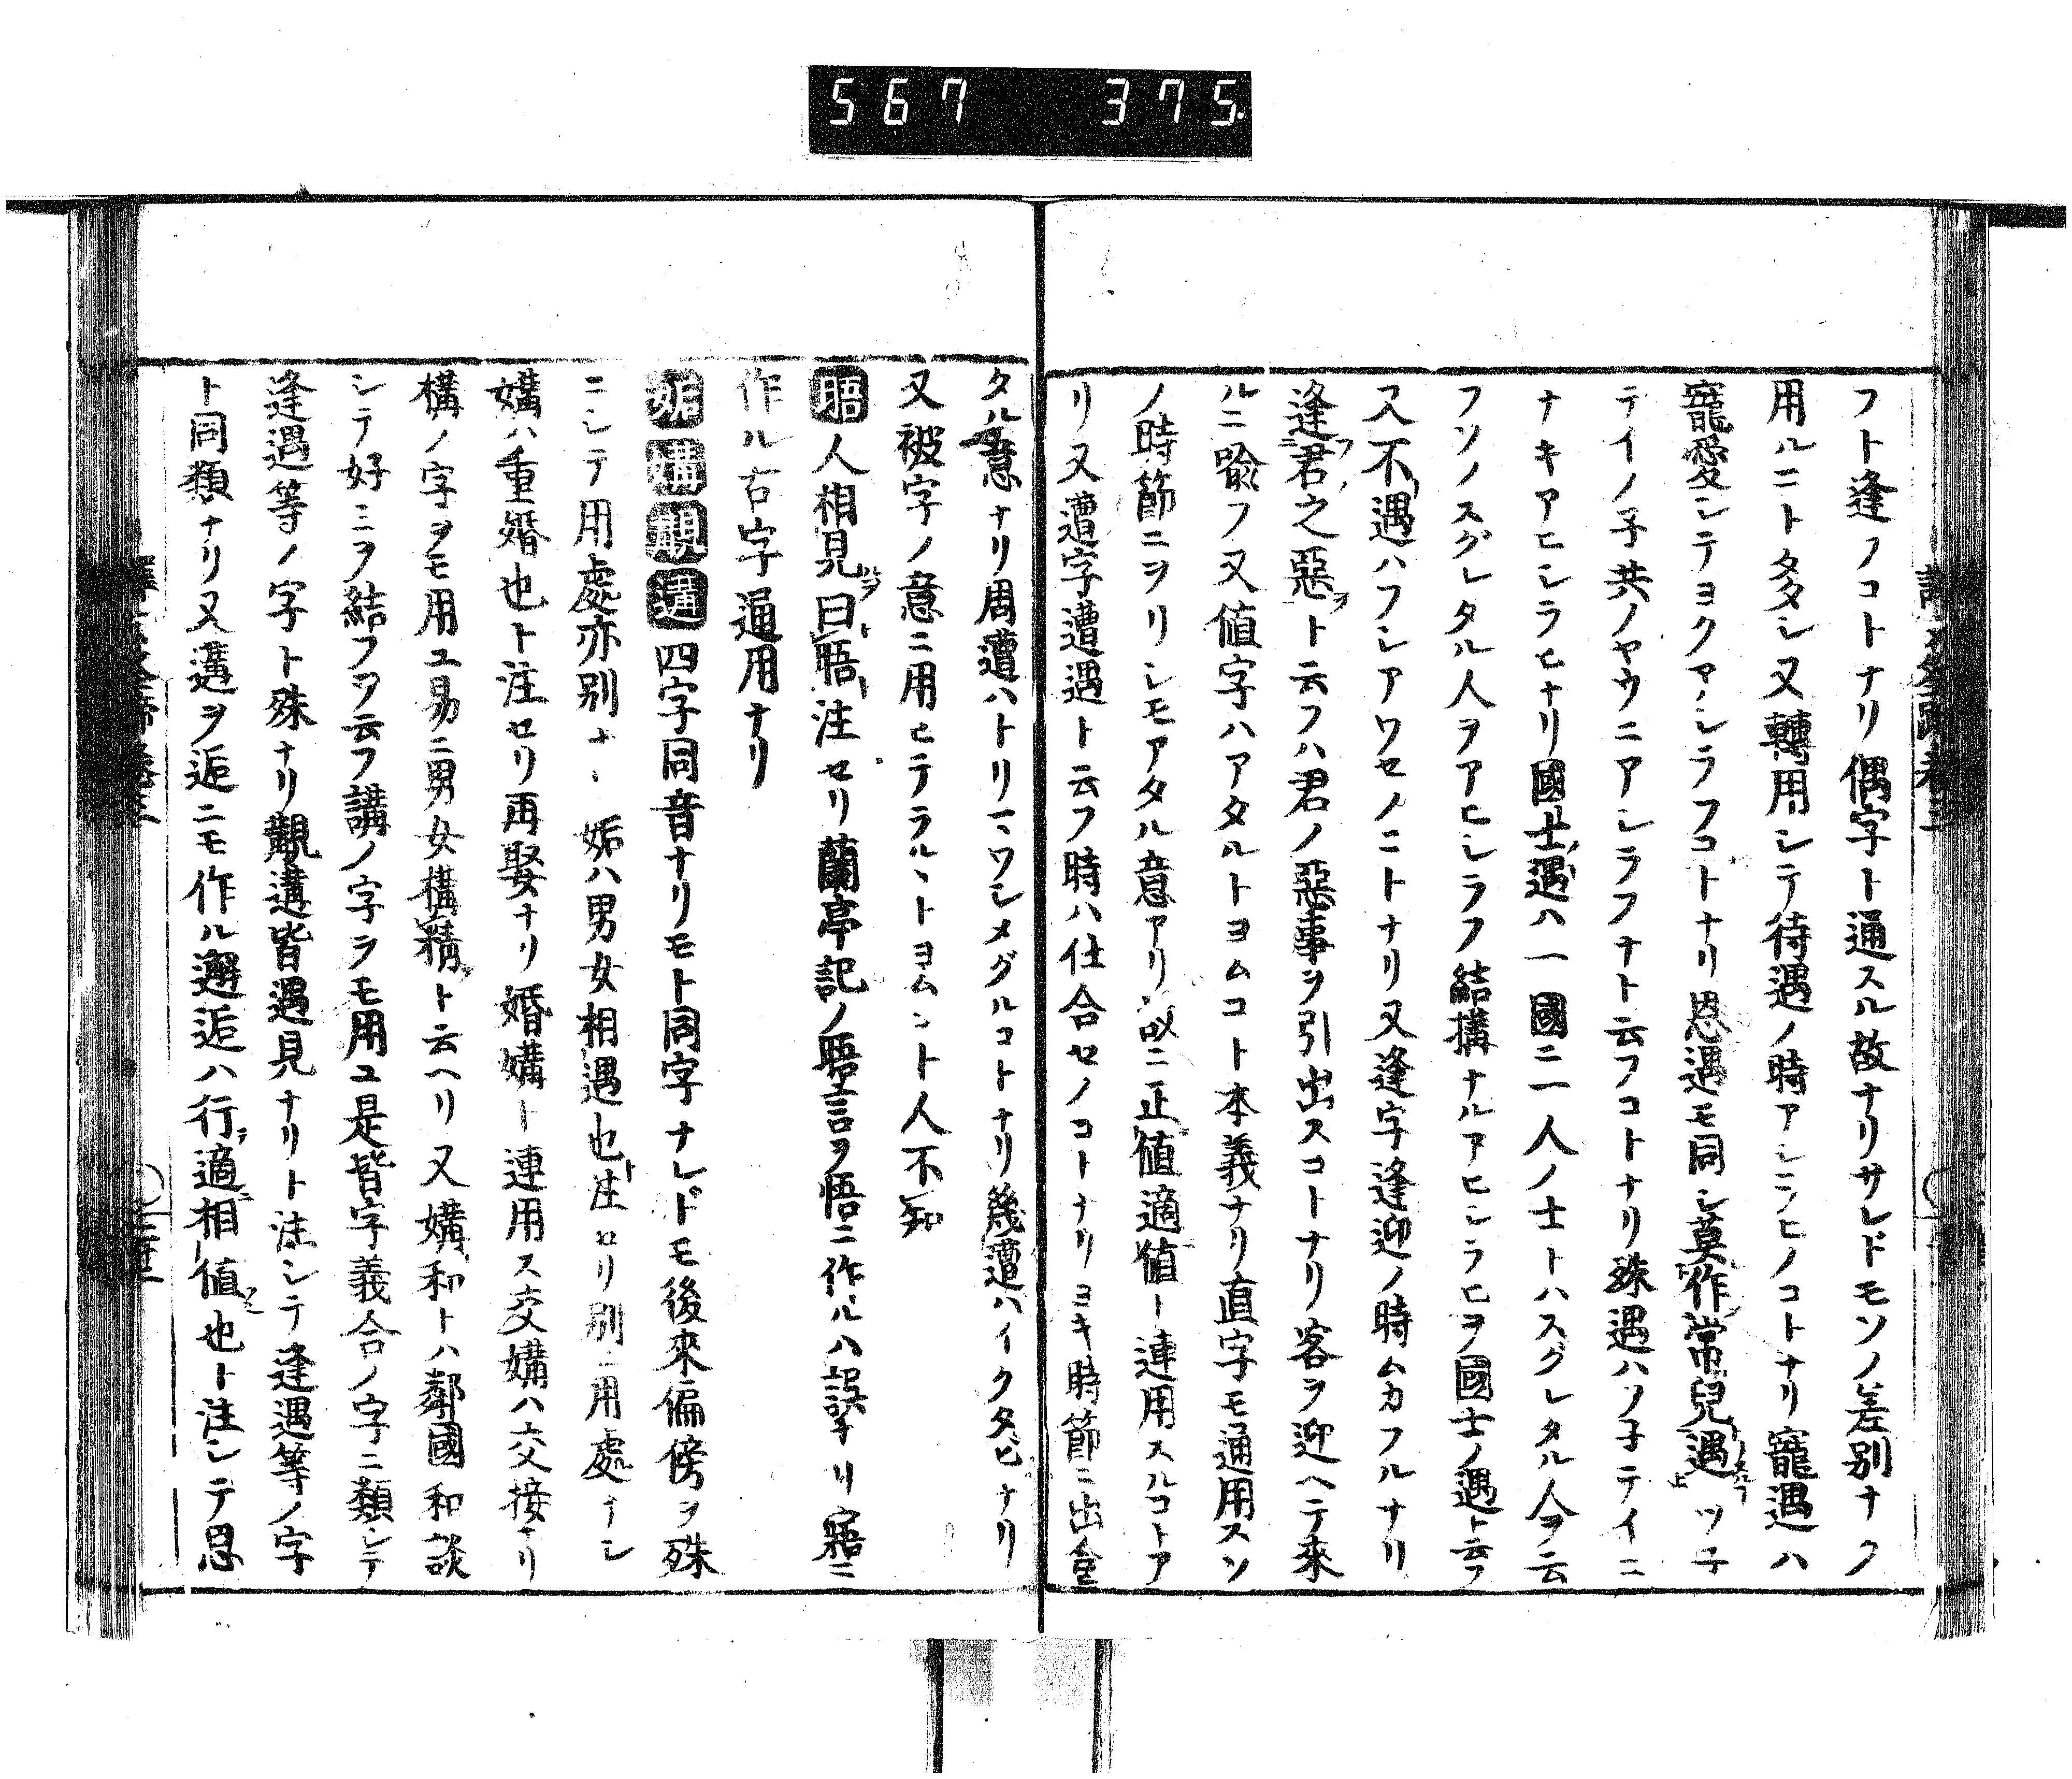 567 375
フト逢フコトナリ偶字ト通スル故ナリサレドモソノ差別ナク
用ルニト多タシ又轉用シテ待遇ノ時アシラヒノコトナリ寵遇ハ
寵愛シテヨクアシラフコトナリ恩遇モ同シ莫作常兒遇ツ子
テイノ子共ノヤウニアシラフナト云フコトナリ殊遇ハツ子テイニ
ナキアヒシラヒナリ國士遇ハ一國ニ一人ノ士トハスグレタル人ヲ云
フソノスグレタル人ヲアヒシラフ結構ナルアヒシラヒヲ國士ノ遇ト云フ
又不遇ハフシアワセノコトナリ又逢字逢迎ノ時ムカフルナリ
逢君之惡ト云フハ君ノ惡事ヲ引出スコトナリ客ヲ迎ヘテ來
ルニ喩フ又値字ハアタルトヨムコト本義ナリ直字モ通用スソ
ノ時節ニヲリシモアタル意アリ故ニ正値適値ト連用スルコトア
リ又遭字遭遇ト云フ時ハ仕合セノコトナリヨキ時節ニ出會
タル意ナリ周遭ハトリマワシメグルコトナリ幾遭ハイクタビナリ
又被字ノ意ニ用ヒテラルヽトヨムコト人不知
晤人相見曰晤ト注セリ蘭亭記ノ晤言ヲ悟ニ作ルハ誤ナリ寤ニ
作ル古字通用ナリ
姤媾覯遘四字同音ナリモト同字ナレドモ後來偏傍ヲ殊
ニシテ用處亦別ナリ姤ハ男女相遇也ト注セリ別ニ用處ナシ
媾ハ重婚也ト注セリ再娶ナリ婚媾ト連用ス交媾ハ交接ナリ
構ノ字ヲモ用ユ易ニ男女構精ト云ヘリ又媾和トハ鄰國和談
シテ好ミヲ結フヲ云フ講ノ字ヲモ用ユ是皆字義合ノ字ニ類シテ
逢遇等ノ字ト殊ナリ覯遘皆遇見ナリト注シテ逢遇等ノ字
ト同類ナリ又遘ヲ逅ニモ作ル邂逅ハ行適相値也ト注シテ思